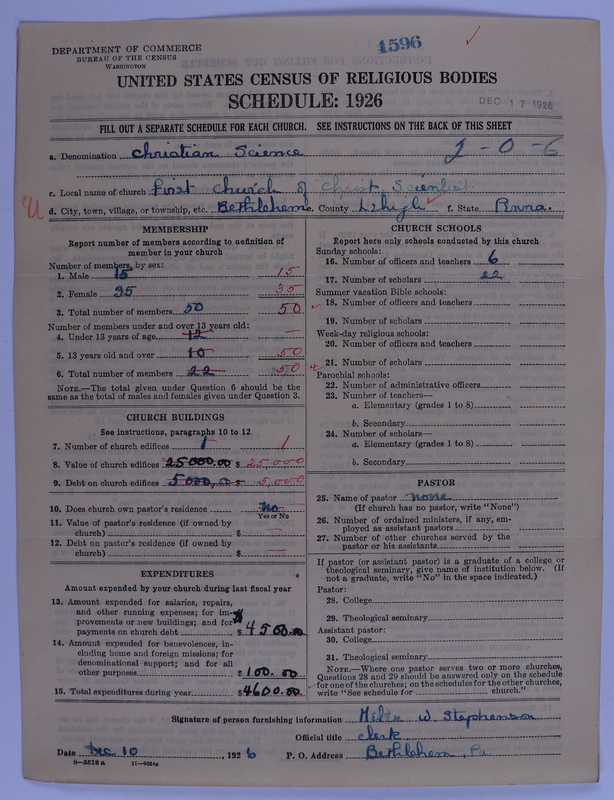 DEPARTMENT OF COMMERCE
BUREAU OF THE CENSUS
WASHINGTON
1596
UNITED STATES CENSUS OF RELIGIOUS BODIES
SCHEDULE: 1926
DEC 17 1926
FILL OUT A SEPARATE SCHEDULE FOR EACH CHURCH. SEE INSTRUCTIONS ON THE BACK OF THIS SHEET
a. Denomination Christian Science 2-0-6
c. Local name of church First Church of Christ, Scientist
d. City, town, village, or township, etc. Bethlehem e. County Lehigh f. State Penna.
MEMBERSHIP
Report number of members according to definition of
member in your church
Number of members, by sex:
1. Male 15 15
2. Female 35 35
3. Total number of members 50 50
Number of members under and over 13 years old:
4. Under 13 years of age 12 —
5. 13 years old and over 10 50
6. Total number of members 22 50
NOTE.—The total given under Question 6 should be the
same as the total of males and females given under Question 3.
CHURCH BUILDINGS
See instructions, paragraphs 10 to 12
7. Number of church edifices 1 1
8. Value of church edifices 25000.00 $ 25000
9. Debt on church edifices 5000.00 $ 5000
10. Does church own pastor's residence No
Yes or No
11. Value of pastor's residence (if owned by
church) $
12. Debt on pastor's residence (if owned by
church) $ —
EXPENDITURES
Amount expended by your church during last fiscal year
13. Amount expended for salaries, repairs,
and other running expenses; for im-
provements or new buildings; and for
payments on church debt $ 4500.00
14. Amount expended for benevolences, in-
cluding home and foreign missions; for
denominational support; and for all
other purposes $ 100.00
15. Total expenditures during year $ 4600.00
CHURCH SCHOOLS
Report here only schools conducted by this church
Sunday schools:
16. Number of officers and teachers 6
17. Number of scholars 22
Summer vacation Bible schools:
18. Number of officers and teachers
19. Number of scholars
Week-day religious schools:
20. Number of officers and teachers
21. Number of scholars
Parochial schools:
22. Number of administrative officers
23. Number of teachers—
a. Elementary (grades 1 to 8)
b. Secondary
24. Number of scholars—
a. Elementary (grades 1 to 8)
b. Secondary
PASTOR
25. Name of pastor none
(If church has no pastor, write "None")
26. Number of ordained ministers, if any, em-
ployed as assistant pastors
27. Number of other churches served by the
pastor or his assistants
If pastor (or assistant pastor) is a graduate of a college or
theological seminary, give name of institution below. (If
not a graduate, write "No" in the space indicated.)
Pastor:
28. College
29. Theological seminary
Assistant pastor:
30. College
31. Theological seminary
NOTE.—Where one pastor serves two or more churches,
Questions 28 and 29 should be answered only on the schedule
for one of the churches; on the schedules for the other churches,
write "See schedule for church."
Signature of person furnishing information Helen W Stephenson
Official title Clerk
Date Dec 10, 1926 P. O. Address Bethlehem, Pa
8—5518a 11—9034